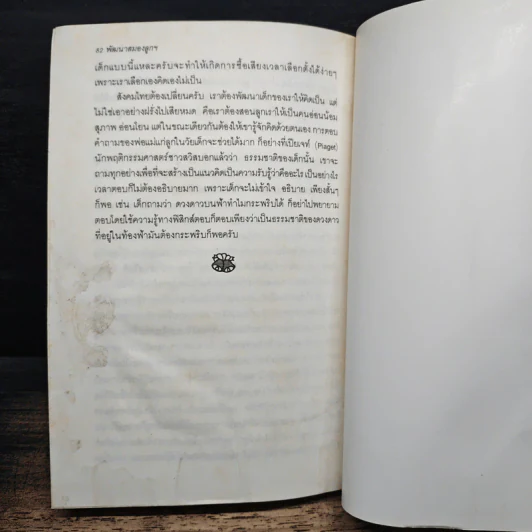 82 พัฒนาสมองลูกฯ
เด็กแบบนี้แหละครับจะทำให้เกิดการซื้อเสียงเวลาเลือกตั้งได้ง่ายๆ
เพราะเราเลือกเองคิดเองไม่เป็น
สังคมไทยต้องเปลี่ยนครับ เราต้องพัฒนาเด็กของเราให้คิดเป็น แต่
ไม่ใช่เอาอย่างฝรั่งไปเสียหมด คือเราต้องสอนลูกเราให้เป็นคนอ่อนน้อม
สุภาพ อ่อนโยน แต่ในขณะเดียวกันต้องให้เขารู้จักคิดด้วยตนเอง การตอบ
คำถามของพ่อแม่แก่ลูกในวัยเด็กจะช่วยได้มาก ก็อย่างที่เปียเจท์ (Piaget)
นักพฤติกรรมศาสตร์ชาวสวิสบอกแล้วว่า ธรรมชาติของเด็กนั้น เขาจะ
ถามทุกอย่างเพื่อที่จะสร้างเป็นแนวคิดเป็นความรับรู้ว่าคืออะไร เป็นอย่างไร
เวลาตอบก็ไม่ต้องอธิบายมาก เพราะเด็กจะไม่เข้าใจ อธิบาย เพียงสั้นๆ
ก็พอ เช่น เด็กถามว่า ดวงดาวบนฟ้าทำไมกระพริบได้ ก็อย่าไปพยายาม
ตอบโดยใช้ความรู้ทางฟิสิกส์ตอบก็ตอบเพียงว่าเป็นธรรมชาติของดวงดาว
ที่อยู่ในท้องฟ้ามันต้องกระพริบก็พอครับ